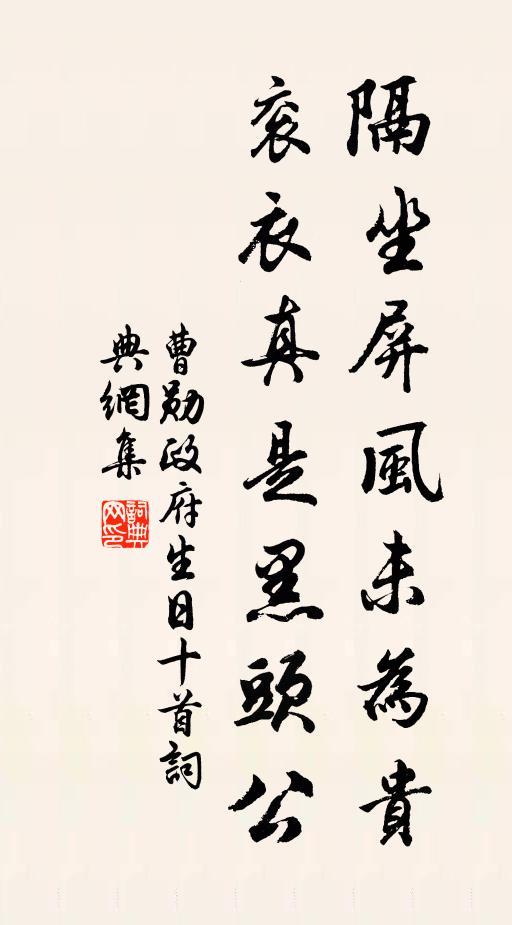 隔坐屏風未為貴
衮衣真是黑頭公
曹勛政府生日十首詞
典網集
詞典
网印